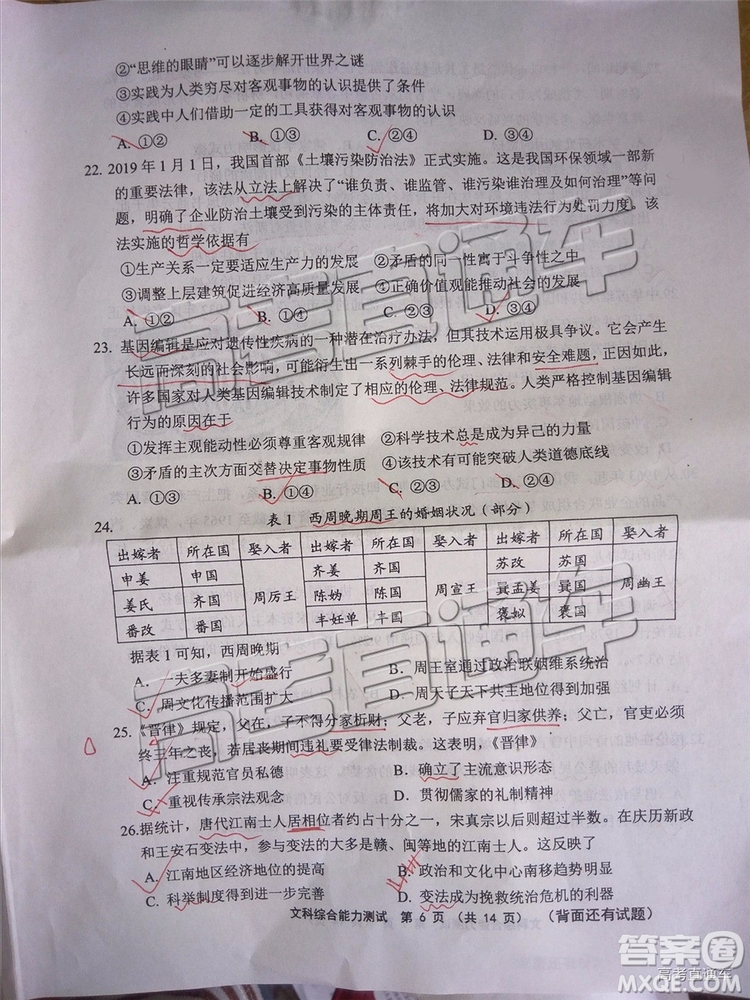 ②“思维的眼睛”可以逐步解开世界之谜
③实践为人类穷尽对客观事物的认识提供了条件
④实践中人们借助一定的工具获得对客观事物的认识
A. ①② B. ①③ C. ②④ D. ③④
22. 2019年1月1日，我国首部《土壤污染防治法》正式实施。这是我国环保领域一部新
的重要法律，该法从立法上解决了“谁负责、谁监管、谁污染谁治理及如何治理”等问
题，明确了企业防治土壤受到污染的主体责任，将加大对环境违法行为处罚力度。该
法实施的哲学依据有
①生产关系一定要适应生产力的发展 ②矛盾的同一性寓于斗争性之中
③调整上层建筑促进经济高质量发展 ④正确价值观能推动社会的发展
A. ①② B. ①④ C. ②③ D. ③④
23. 基因编辑是应对遗传性疾病的一种潜在治疗办法，但其技术运用极具争议。它会产生
长远而深刻的社会影响，可能衍生出一系列棘手的伦理、法律和安全难题，正因如此，
许多国家对人类基因编辑技术制定了相应的伦理、法律规范。人类严格控制基因编辑
行为的原因在于
①发挥主观能动性必须尊重客观规律 ②科学技术总是成为异己的力量
③矛盾的主次方面交替决定事物性质 ④该技术有可能突破人类道德底线
A. ①③ B. ①④ C. ②③ D. ②④
24. 表1 西周晚期周王的婚姻状况（部分）
出嫁者 所在国 娶入者 出嫁者 所在国 娶入者 出嫁者 所在国 娶入者
申姜 申国 周厉王 齐姜 齐国 周宣王 苏改 苏国 周幽王
姜氏 齐国 陈妫 陈国 巽孟姜 巽国
番改 番国 丰妊单 丰国 褒姒 褒国
据表1可知，西周晚期
A. 一夫多妻制开始盛行 B. 周王室通过政治联姻维系统治
C. 周文化传播范围扩大 D. 周天子天下共主地位得到巩固
25. 《晋律》规定，父在，子不得分家析财；父老，子应弃官归家供养；父亡，官吏必须
终三年之丧。若居丧期间违礼要受律法制裁。这表明，《晋律》
A. 注重规范官员私德 B. 确立了主流意识形态
C. 重视传承宗法观念 D. 贯彻儒家的礼制精神
26. 据统计，唐代江南士人居相位者约占十分之一，宋真宗以后则超过半数。在庆历新政
和王安石变法中，参与变法的大多是赣、闽等地的江南士人。这反映了
A. 江南地区经济地位的提高 B. 政治和文化中心南移趋势明显
C. 科举制度得到进一步完善 D. 变法成为挽救统治危机的利器
文科综合能力测试 第6页（共14页） （背面还有试题）
高考直通车
高考直通车
高考直通车
答案圈
高考直通车
MXQE.COM